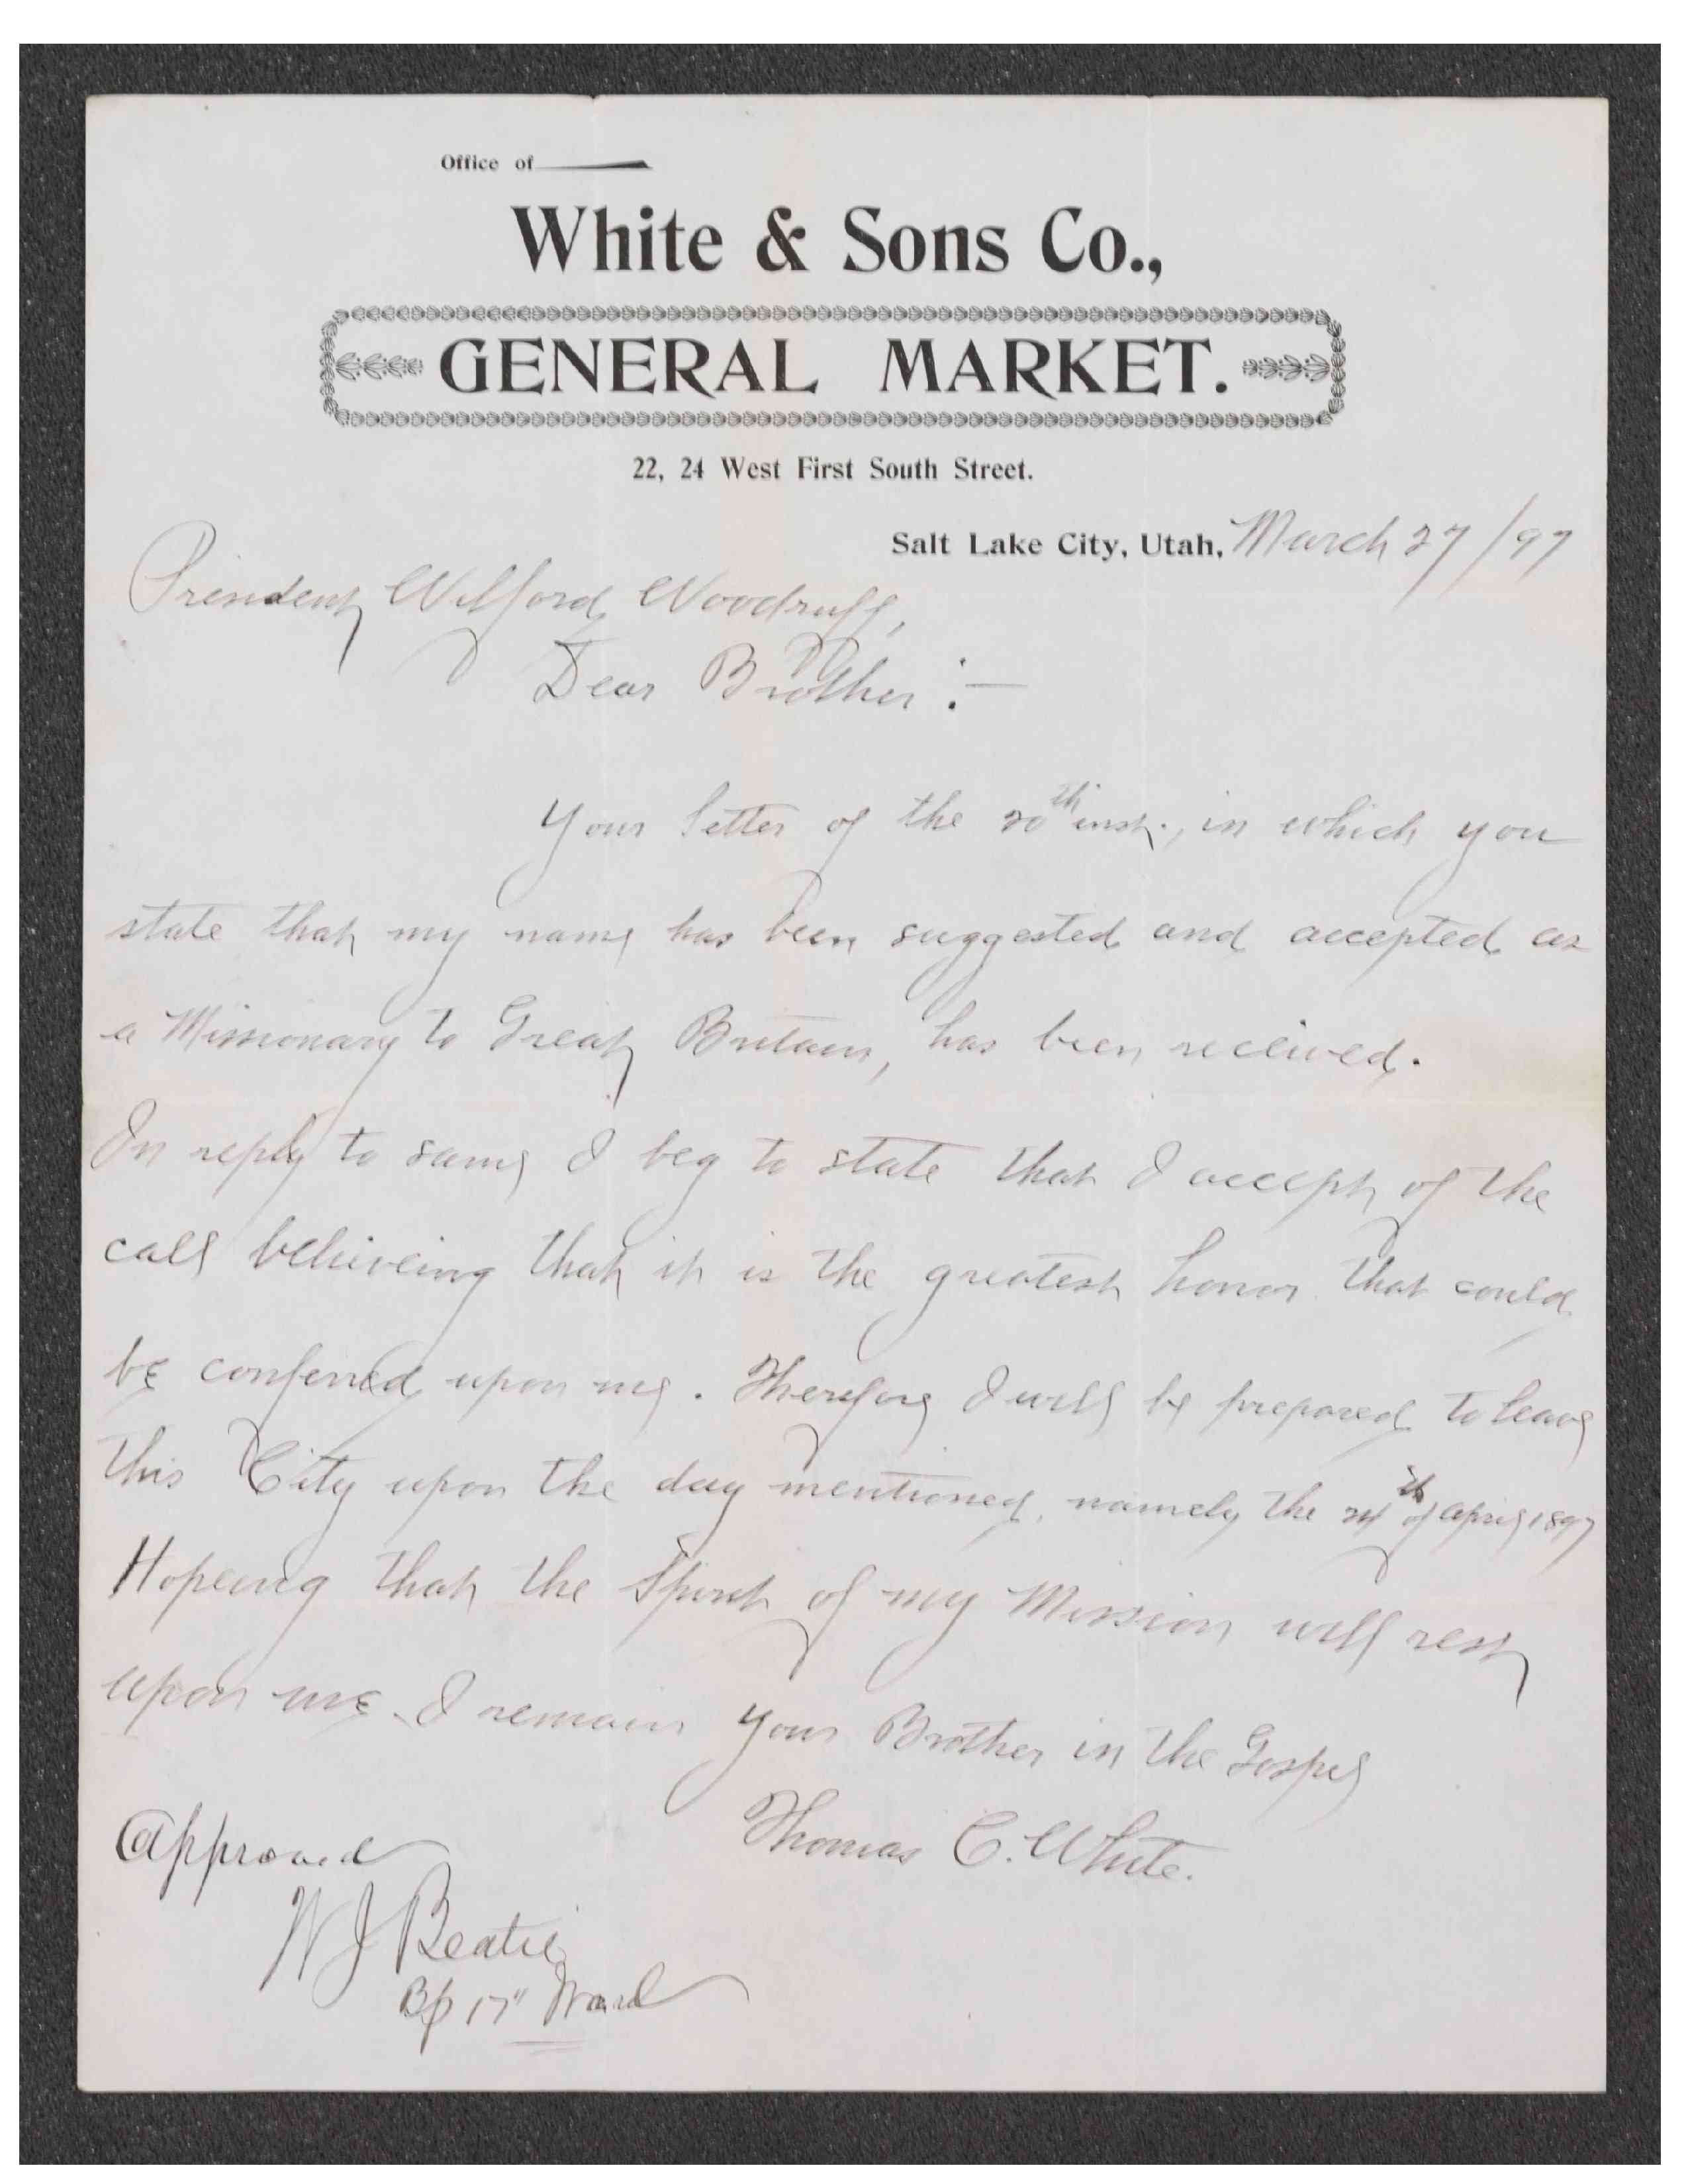 Office of
White & Sons Co.,
GENERAL MARKET.
22, 24 West First South Street.
Salt Lake City, Utah, March 27/97
President Wilford Woodruff,
Dear Brother:—
Your letter of the 20th inst., in which you
state that my name has been suggested and accepted as
a Missionary to Great Britain, has been received.
In reply to same I beg to state that I accept of the
call believeing that it is the greatest honor that could
be conferred upon me. Therefore I will be prepared to leave
this City upon the day mentioned, namely the 24th of April 1897
Hopeing that the Spirit of my Mission will rest
upon me. I remain your Brother in the Gospel
Thomas C. White.
Approved
W J Beatie
Bp 17" Ward